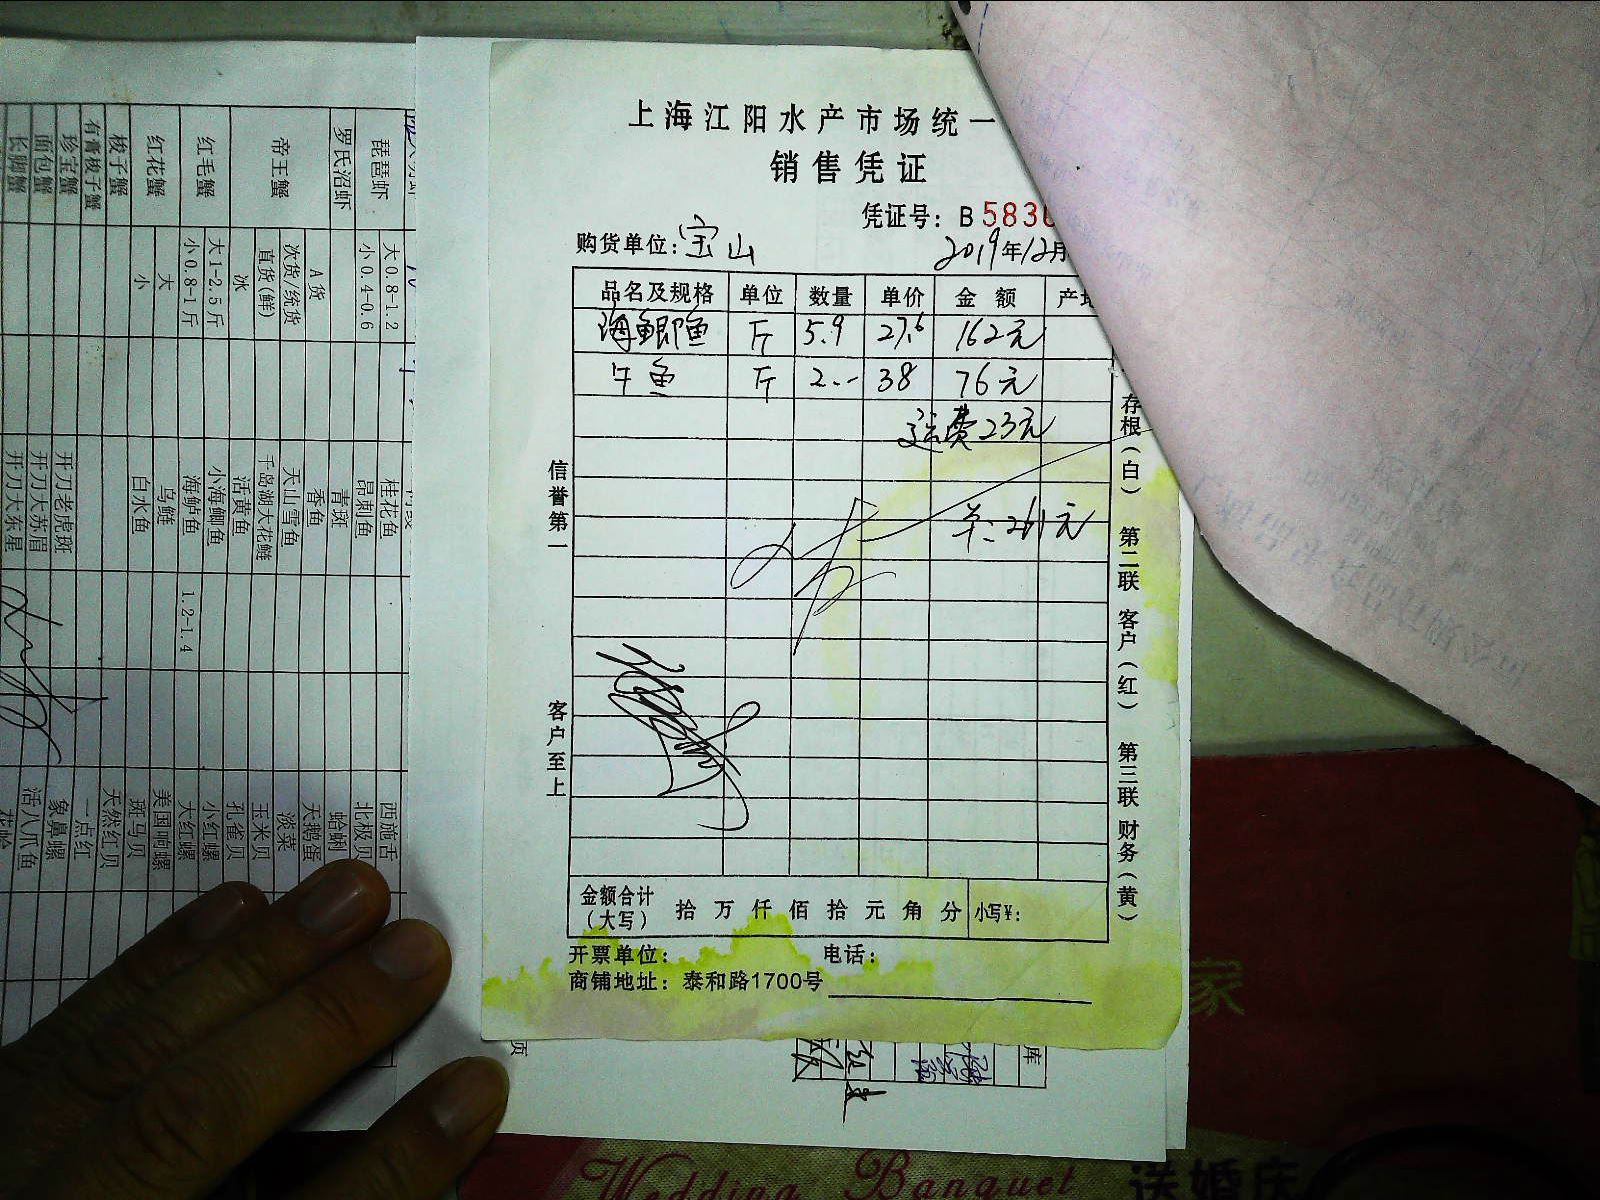 上海江阳水产市场统一
销售凭证
凭证号：B 5830
购货单位：宝山 2019年12月
品名及规格 单位 数量 单价 金额 产地
海鲫鱼 斤 5.9 27.6 162元
牛鱼 斤 2.-- 38 76元
运费23元
261元
信誉第一
客户至上
存根（白） 第二联 客户（红） 第三联 财务（黄）
金额合计（大写） 拾 万 仟 佰 拾 元 角 分 小写¥：
开票单位： 电话：
商铺地址：泰和路1700号
琵琶虾 大0.8-1.2 桂花鱼 西施舌
小0.4-0.6 昂刺鱼 北极贝
罗氏沼虾 青斑 蛤蜊
帝王蟹 A货 香鱼 天鹅蛋
次货/统货 天山雪鱼 淡菜
直货(鲜) 千岛湖大花鲢 玉米贝
冰 活黄鱼 孔雀贝
红毛蟹 大1-2.5斤 小海鲫鱼 小红螺
小0.8-1斤 海鲈鱼 1.2-1.4 大红螺
红花蟹 大 乌鲢 美国响螺
小 白水鱼 斑马贝
梭子蟹 天然红贝
有膏梭子蟹 一点红
珍宝蟹 开刀老虎斑 象鼻螺
面包蟹 开刀大苏眉 活八爪鱼
长脚蟹 开刀大东星 花蛤
页
库
家
Wedding Banquet 送婚庆